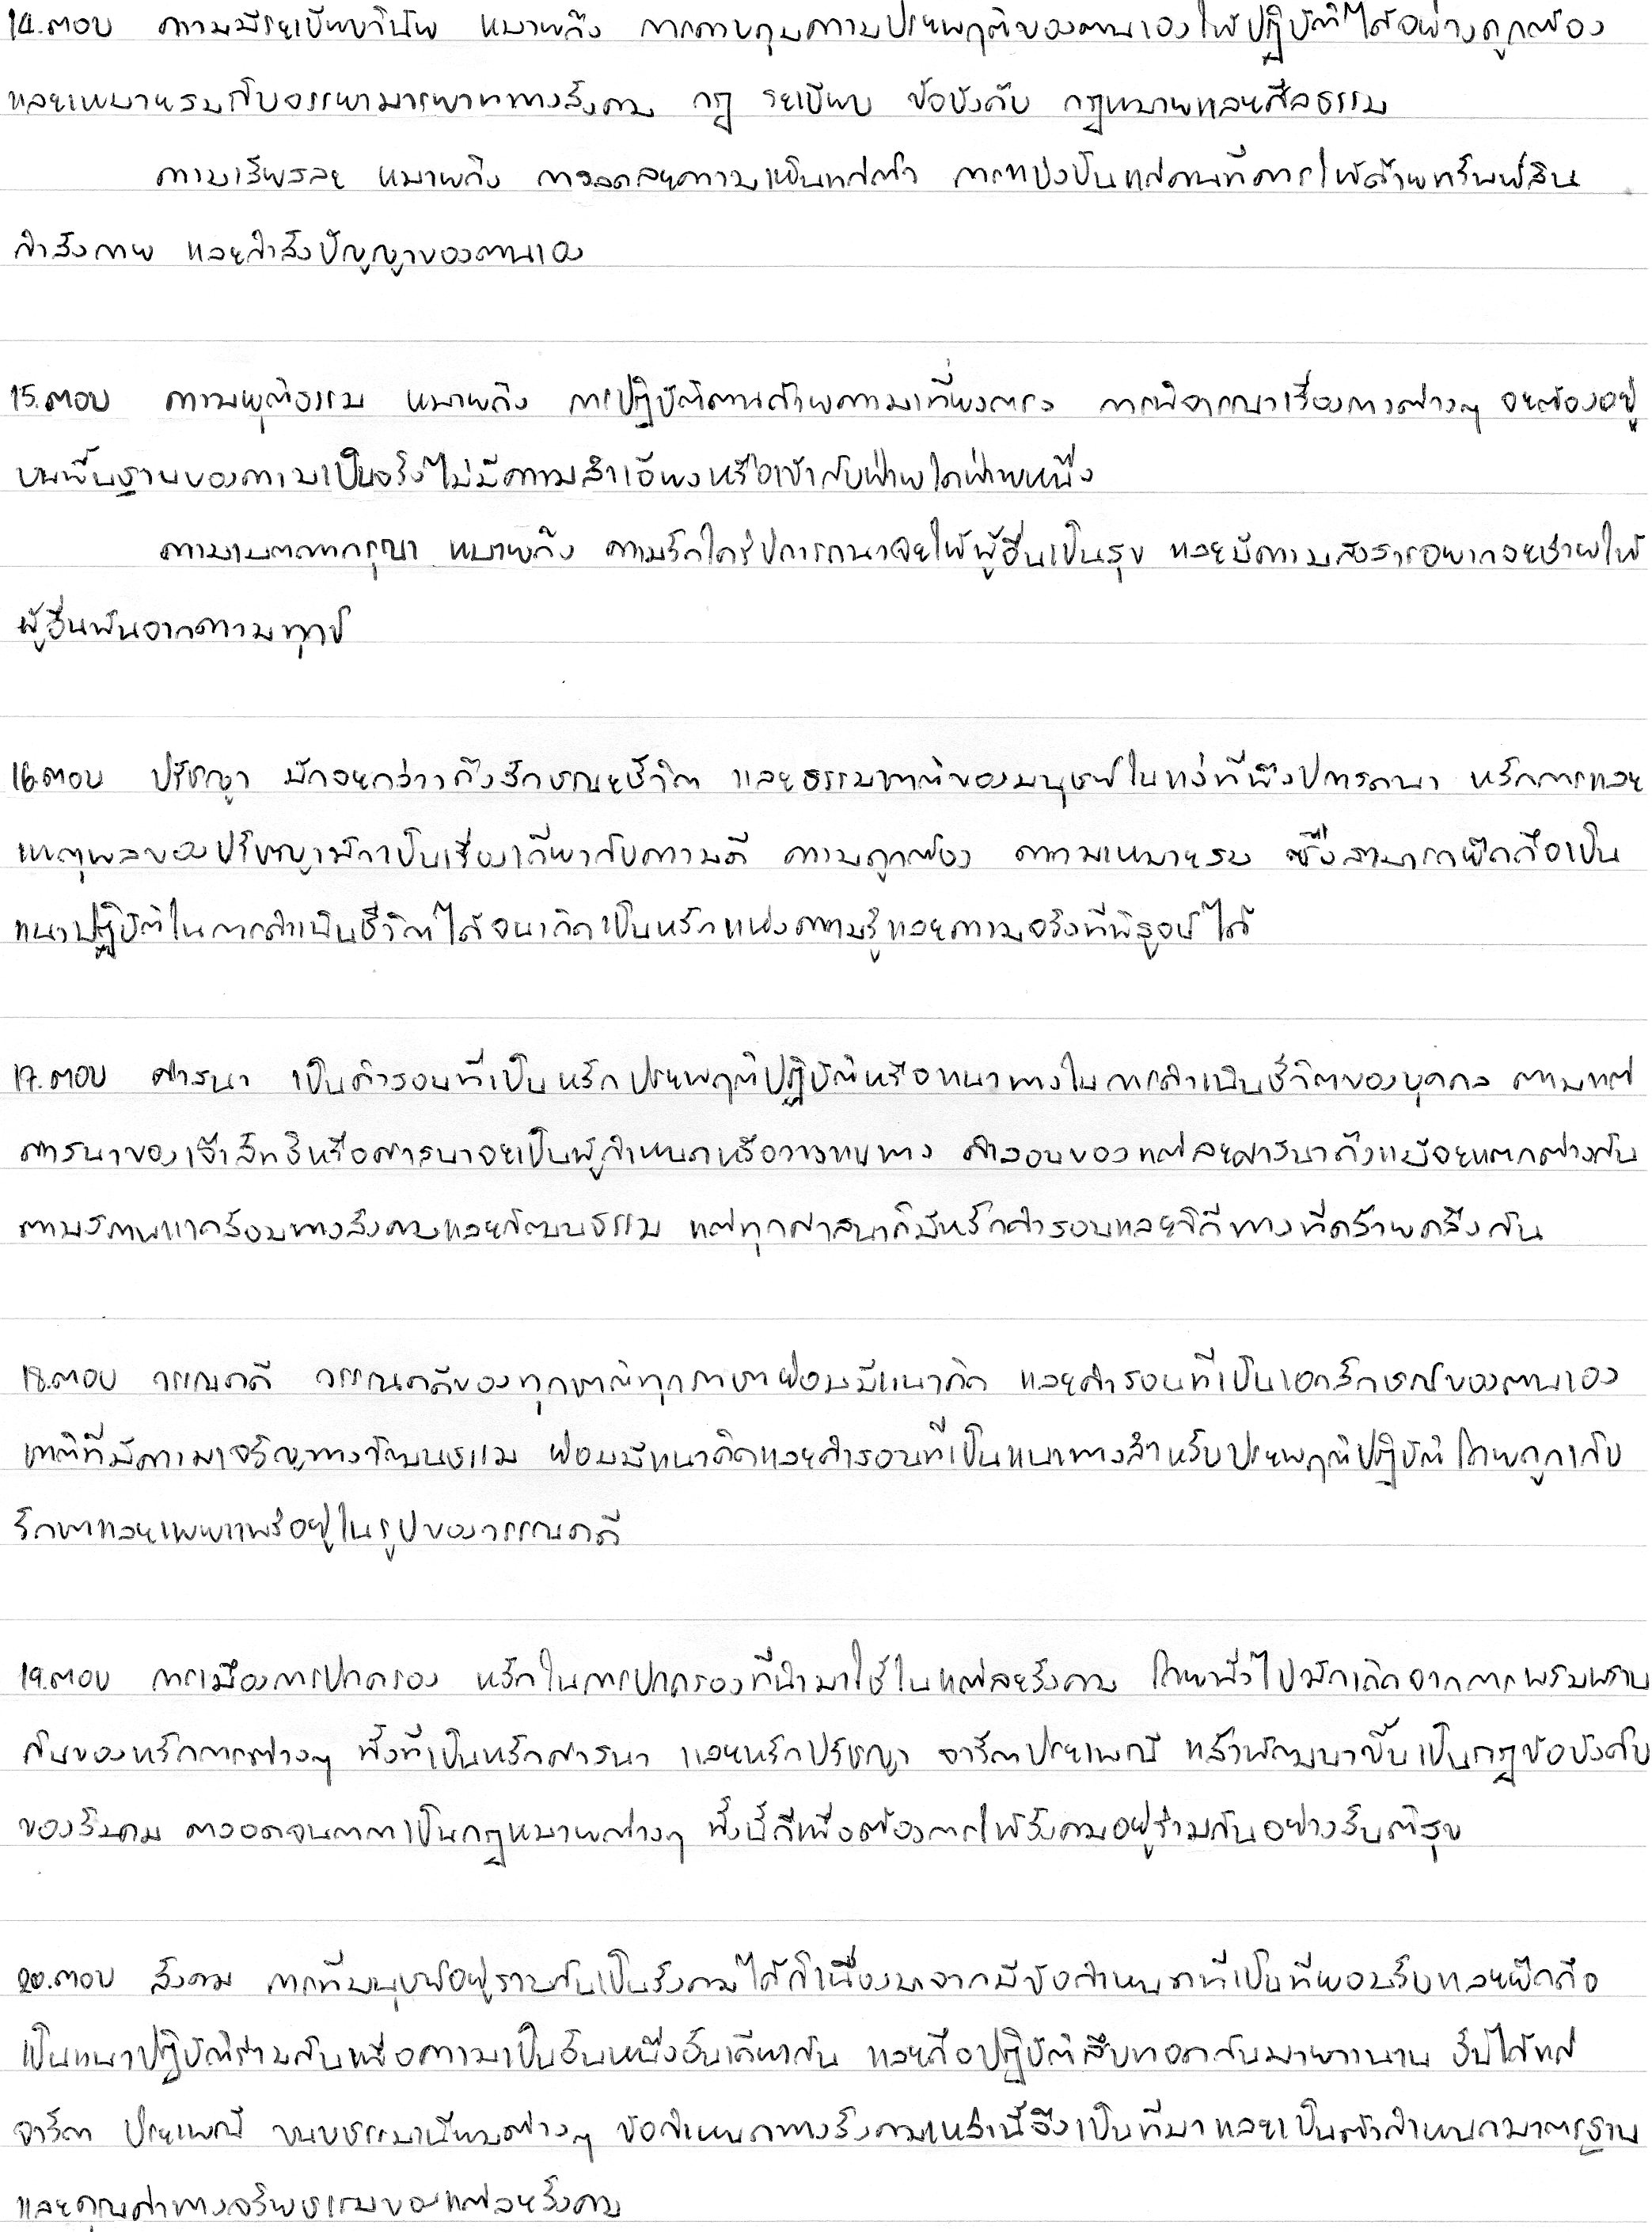 14.ตอบ ความมีระเบียบวินัย หมายถึง การควบคุมความประพฤติของตนเองให้ปฏิบัติได้อย่างถูกต้อง
และเหมาะสมกับจรรยามารยาททางสังคม กฎ ระเบียบ ข้อบังคับ กฎหมายและศีลธรรม
ความเสียสละ หมายถึง การลดละความเห็นแก่ตัว การแบ่งปันแก่คนที่ควรให้ด้วยทรัพย์สิน
กำลังกาย และกำลังปัญญาของตนเอง
15.ตอบ ความยุติธรรม หมายถึง การปฏิบัติตนด้วยความเที่ยงตรง การพิจารณาเรื่องราวต่างๆ จะต้องอยู่
บนพื้นฐานของความเป็นจริงไม่มีความลำเอียงหรือเข้ากับฝ่ายใดฝ่ายหนึ่ง
ความเมตตากรุณา หมายถึง ความรักใคร่ปรารถนาจะให้ผู้อื่นเป็นสุข และมีความสงสารอยากจะช่วยให้
ผู้อื่นพ้นจากความทุกข์
16.ตอบ ปรัชญา มักจะกล่าวถึงลักษณะชีวิต และธรรมชาติของมนุษย์ในแง่ที่พึงปรารถนา หลักการและ
เหตุผลของปรัชญามักเป็นเรื่องเกี่ยวกับความดี ความถูกต้อง ความเหมาะสม ซึ่งสามารถยึดถือเป็น
แนวปฏิบัติในการดำเนินชีวิตได้แนวคิดเป็นหลักแห่งความรู้และความจริงที่พิสูจน์ได้
17.ตอบ ศาสนา เป็นคำสอนที่เป็นหลักประพฤติปฏิบัติหรือแนวทางในการดำเนินชีวิตของบุคคล ตามแต่
ศาสนาของเจ้าลัทธิหรือศาสนาจะเป็นผู้กำหนดหรือวางแนวทาง คำสอนของแต่ละศาสนาถึงแม้จะแตกต่างกัน
ตามสภาพแวดล้อมทางสังคมและวัฒนธรรม แต่ทุกศาสนาก็มีหลักคำสอนและวิถีทางที่คล้ายคลึงกัน
18.ตอบ วรรณคดี วรรณคดีของทุกชาติทุกภาษาย่อมมีแนวคิด และคำสอนที่เป็นเอกลักษณ์ของตนเอง
ชาติที่มีความเจริญทางวัฒนธรรม ย่อมมีแนวคิดและคำสอนที่เป็นแนวทางสำหรับประพฤติปฏิบัติ โดยถูกเก็บ
รักษาและเผยแพร่อยู่ในรูปของวรรณคดี
19.ตอบ การเมืองการปกครอง หลักในการปกครองที่นำมาใช้ในแต่ละสังคม โดยทั่วไปมักเกิดจากการผสมผสาน
กันของหลักการต่างๆ ทั้งที่เป็นหลักศาสนา และหลักปรัชญา จารีตประเพณี แล้วพัฒนาขึ้นเป็นกฎข้อบังคับ
ของสังคม ตลอดจนตราเป็นกฎหมายต่างๆ ทั้งนี้ก็เพื่อต้องการให้สังคมอยู่ร่วมกันอย่างสันติสุข
20.ตอบ สังคม การที่มนุษย์อยู่รวมกันเป็นสังคมได้ก็เนื่องมาจากมีข้อกำหนดที่เป็นที่ยอมรับและยึดถือ
เป็นแนวปฏิบัติร่วมกันเพื่อความเป็นอันหนึ่งอันเดียวกัน และถือปฏิบัติสืบทอดกันมายาวนาน อันได้แก่
จารีต ประเพณี ขนบธรรมเนียมต่างๆ ข้อกำหนดทางสังคมเหล่านี้จึงเป็นที่มาและเป็นตัวกำหนดมาตรฐาน
และคุณค่าทางจริยธรรมของแต่ละสังคม